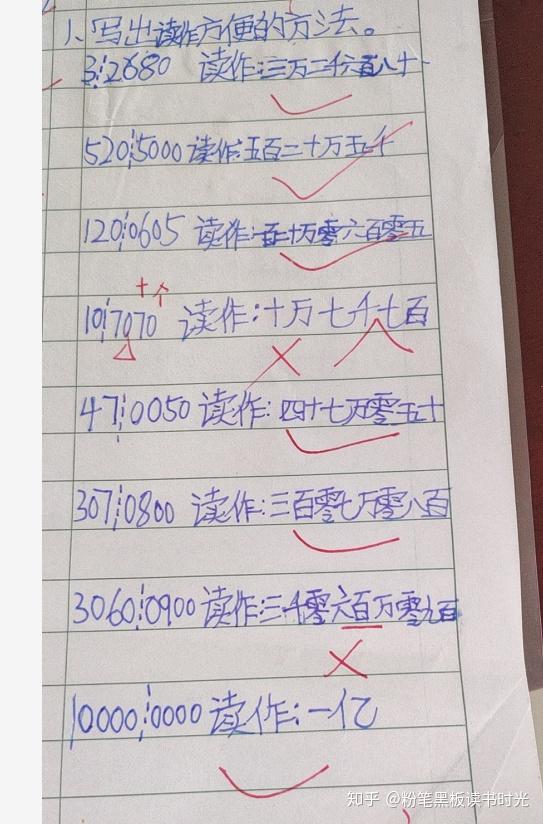 1、写出读作方便的方法。
3¦2680 读作:三万二千六百八十
520¦5000 读作:五百二十万五千
120¦0605 读作:一百二十万零六百零五
十个
10¦7070 读作:十万七千七百
47¦0050 读作:四十七万零五十
307¦0800 读作:三百零七万零八百
3060¦0900 读作:三千零六百万零九百
10000¦0000 读作:一亿
知乎 @粉笔黑板读书时光